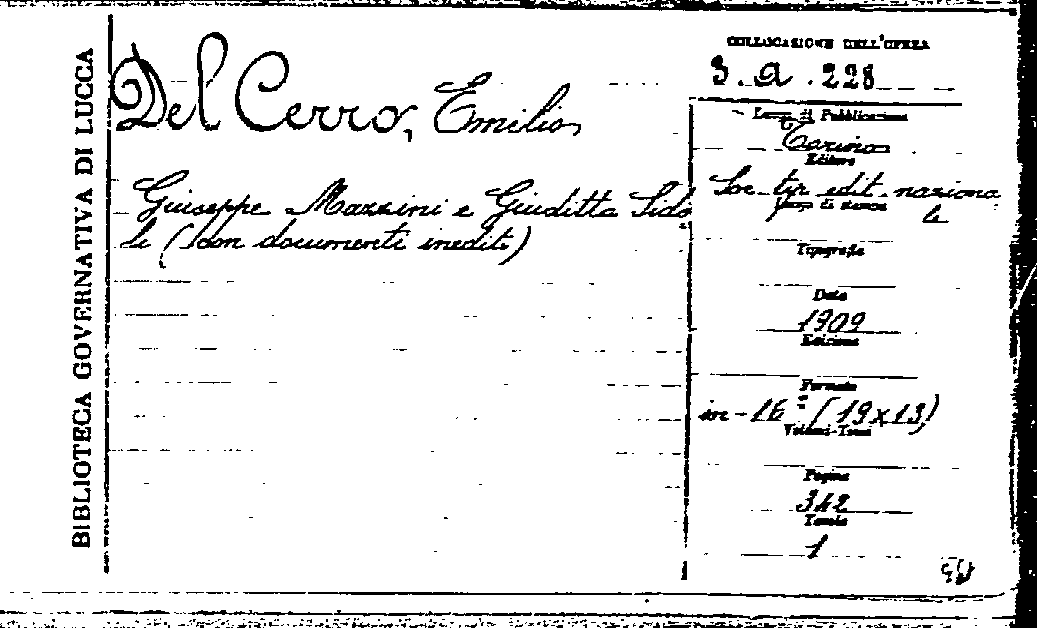 BIBLIOTECA GOVERNATIVA DI LUCCA
Del Cerro, Emilio
Giuseppe Mazzini e Giuditta Sido
li (con documenti inediti)
COLLOCAZIONE DELL'OPERA
3. a. 228
Luogo di Pubblicazione
Torino
Editore
Soc. tip. edit. naziona
le
Luogo di stampa
Tipografia
Data
1909
Edizione
Formato
in-16º (19x13)
Volumi-Tomi
Pagine
342
Tavole
1